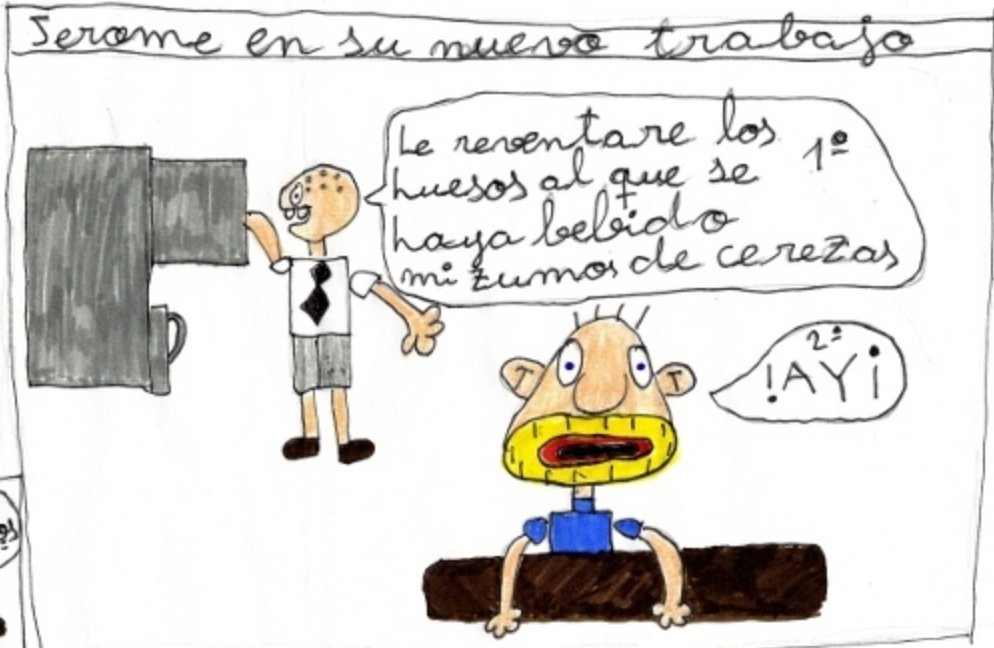 Jerome en su nuevo trabajo
Le reventare los 1º
huesos al que se
haya bebido
mi zumos de cerezas
2º
!AY¡